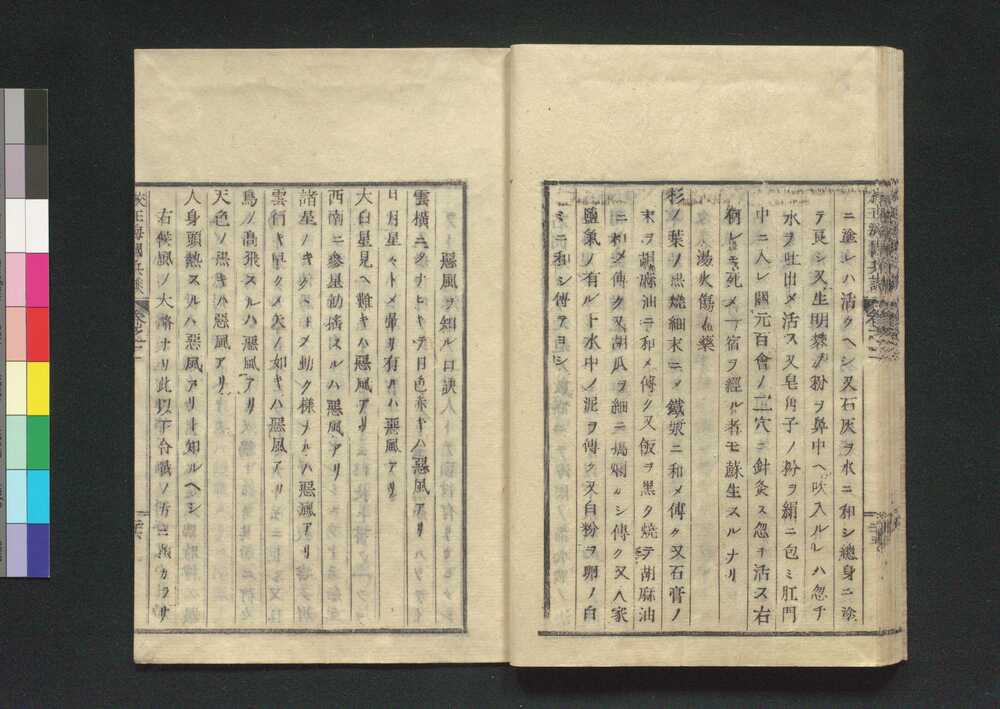 ニ塗レハ活クヘシ又石灰ヲ水ニ和シ總身ニ塗
テ良シ又生明礬ノ粉ヲ鼻中ヘ吹入ルレハ忽チ
水ヲ吐出メ活ス又皂角子ノ粉ヲ絹ニ包ミ肛門
中ニ入レ關元百會ノ二穴ニ針灸ス忽チ活ス右
何レモ死メ一宿ヲ經ル者モ蘇生スルナリ
湯火傷ノ藥
杉ノ葉ノ黒燒細末ニメ鐵漿ニ和メ傅ク又石膏ノ
末ヲ胡麻油ニ和メ傅ク又飯ヲ黒ク燒テ胡麻油
ニ和メ傅ク又胡瓜ヲ細ニ搗爛カシ傅ク又人家
鹽氣ノ有ル下水中ノ泥ヲ傅ク又白粉ヲ卵ノ白
ミニ和シ傅テヨシ
惡風ヲ知ル口訣
雲橫ニタナヒキテ日色赤キハ惡風アリ
日月星ヽトメ暈リ有ルハ惡風アリ
大白星見ヘ難キハ惡風アリ
西南ニ參星動搖スルハ惡風アリ
諸星ノキラメキ動ク樣ナルハ惡風アリ
雲行キ早クメ矢ノ如キハ惡風アリ
鳥ノ高飛スルハ惡風アリ
天色ノ黒キハ惡風アリ
人身頭熱スルハ惡風アリト知ルヘシ
右候風ノ大略ナリ此以下台
校正海國兵談 卷之二